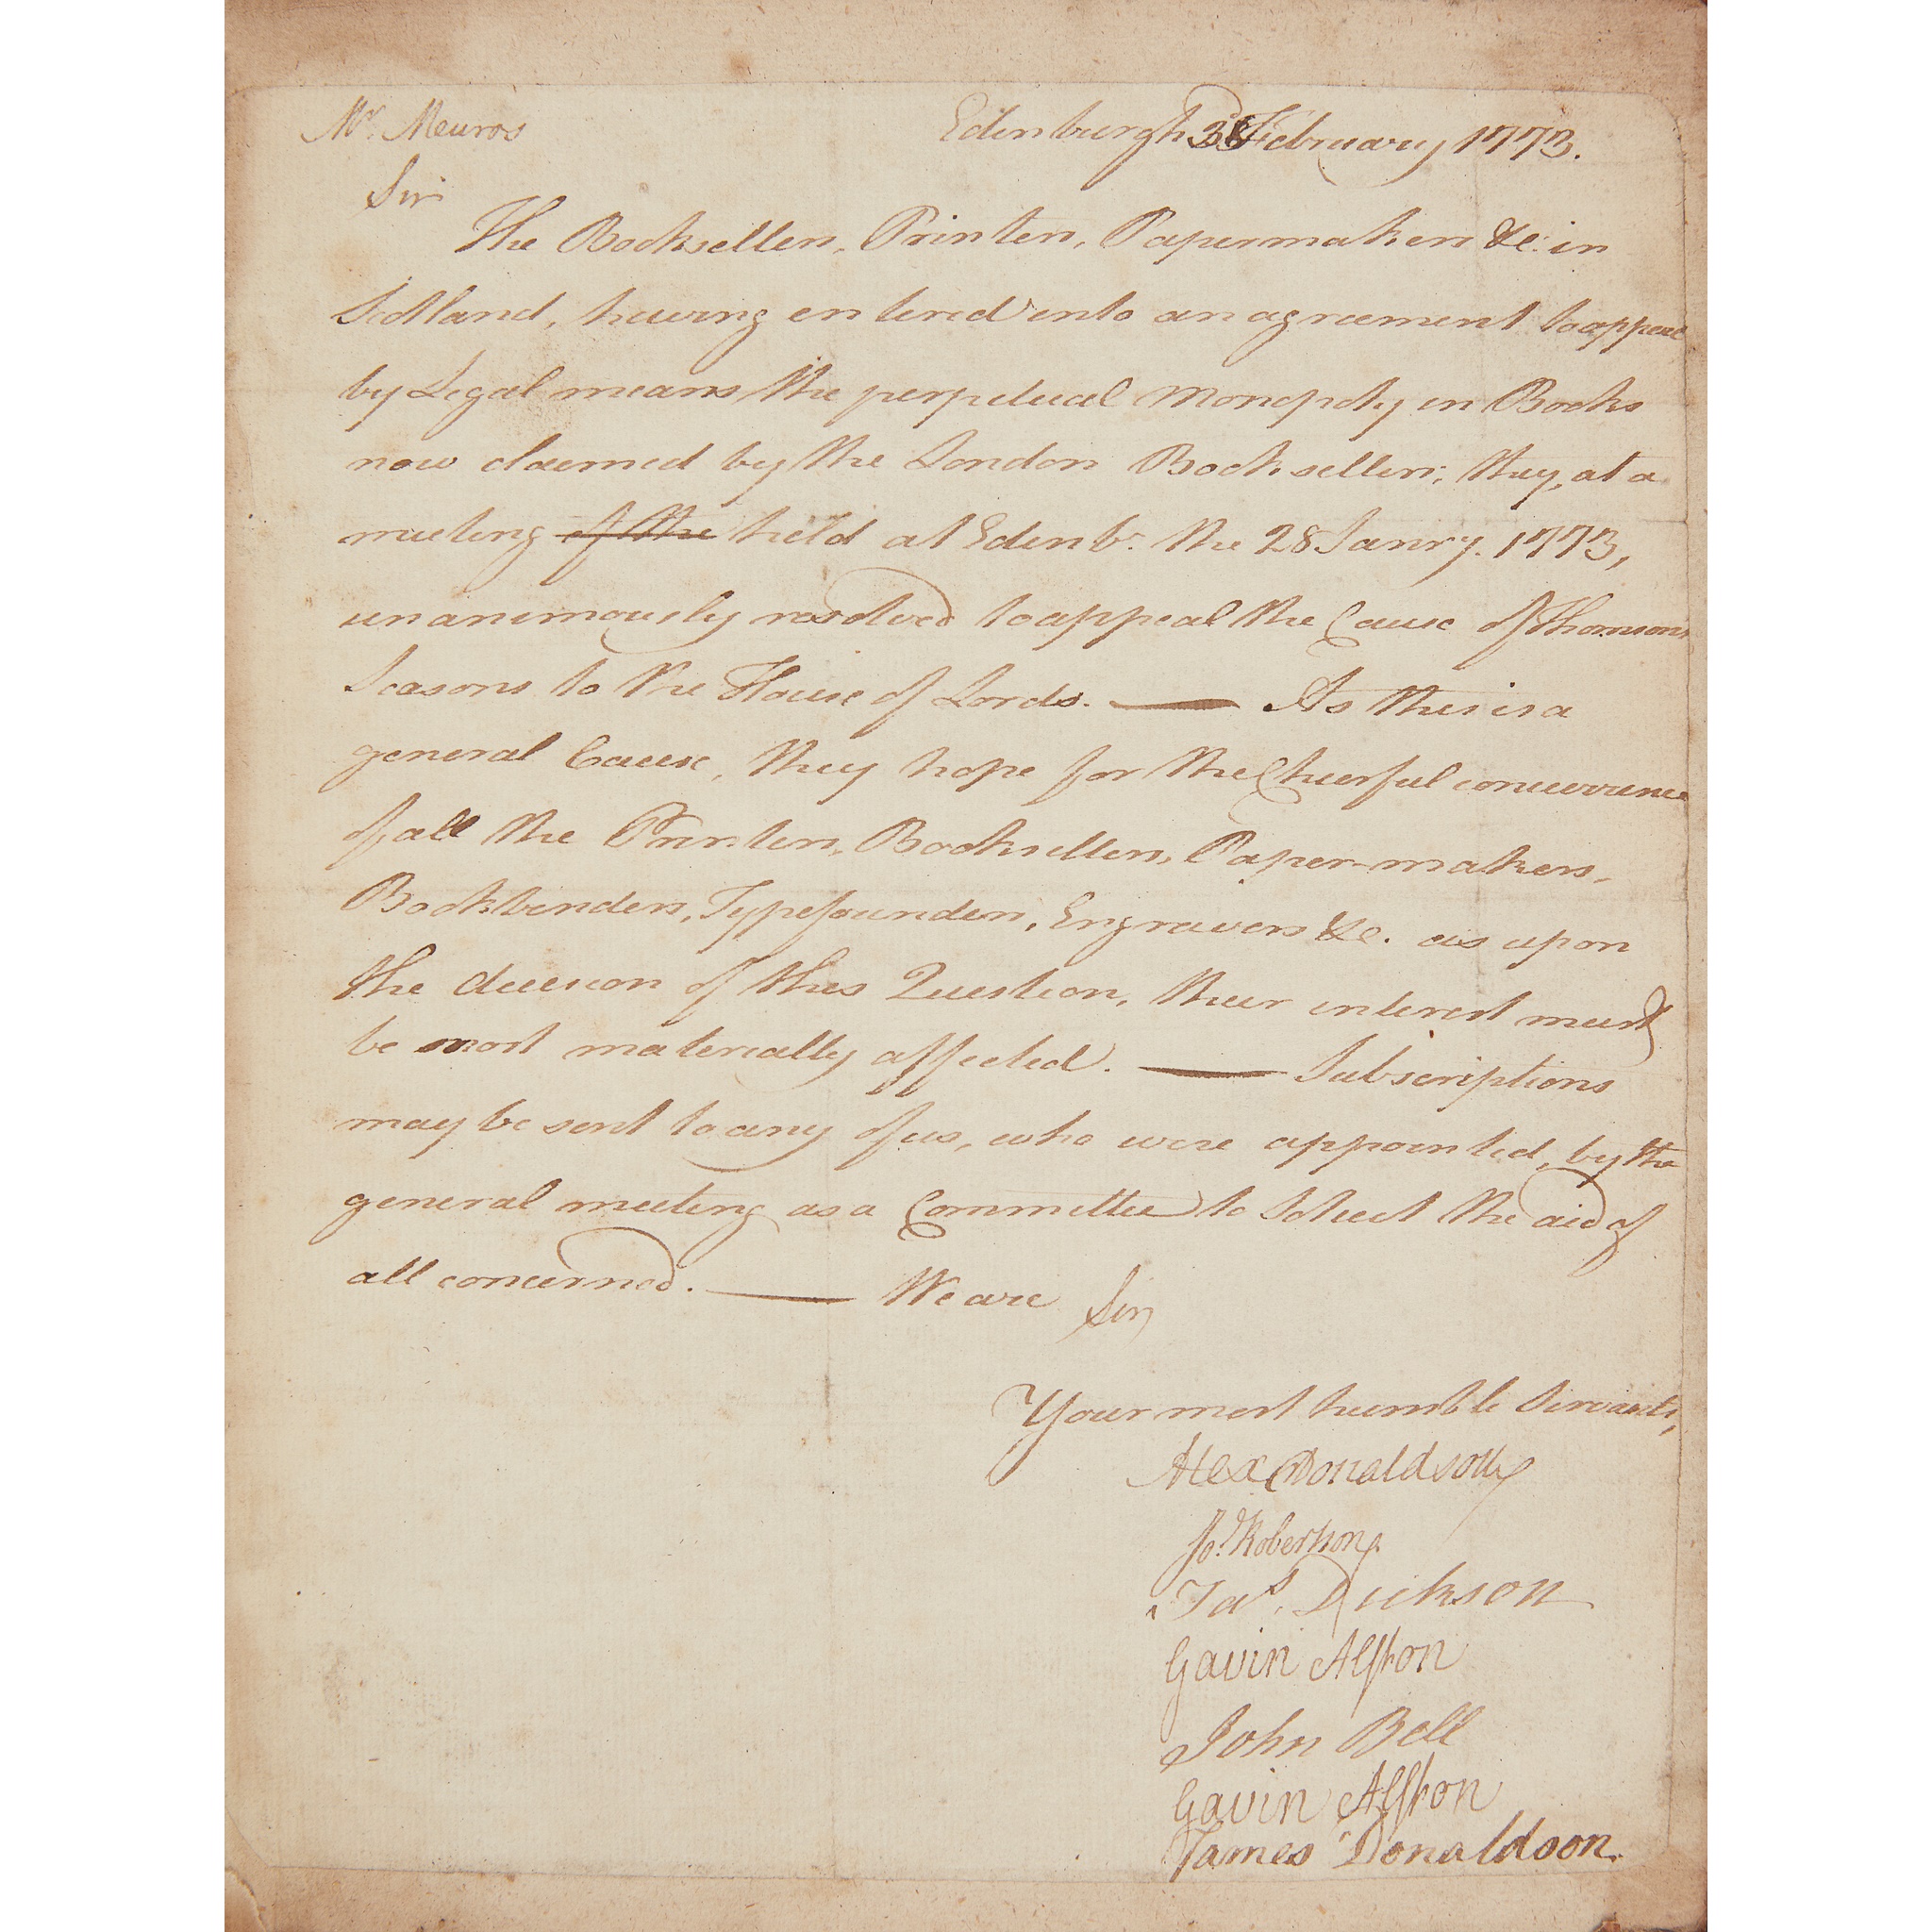 Mr. Meuros
Edinburgh 3d February 1773.
Sir
The Booksellers, Printers, Papermakers &c. in
Scotland, having entered into an agreement to oppose
by Legal means the perpetual Monopoly in Books
now claimed by the London Booksellers; they, at a
meeting of the held at Edenbr. the 28 Janry. 1773,
unanimously resolved to appeal the Cause of Thomsons
Seasons to the House of Lords. — As this is a
general Cause, they hope for the Cheerful concurrence
of all the Printers, Booksellers, Paper-makers,
Bookbinders, Typefounders, Engravers &c. as upon
the decision of this Question, their interest must
be most materially affected. — Subscriptions
may be sent to any of us, who were appointed, by the
general meeting as a Committee to Solicit the aid of
all concerned. — We are Sir,
Your most humble Servants,
Alex Donaldson
Jo: Robertson
Jas. Dickson
Gavin Alston
John Bell
Gavin Alston
James Donaldson.